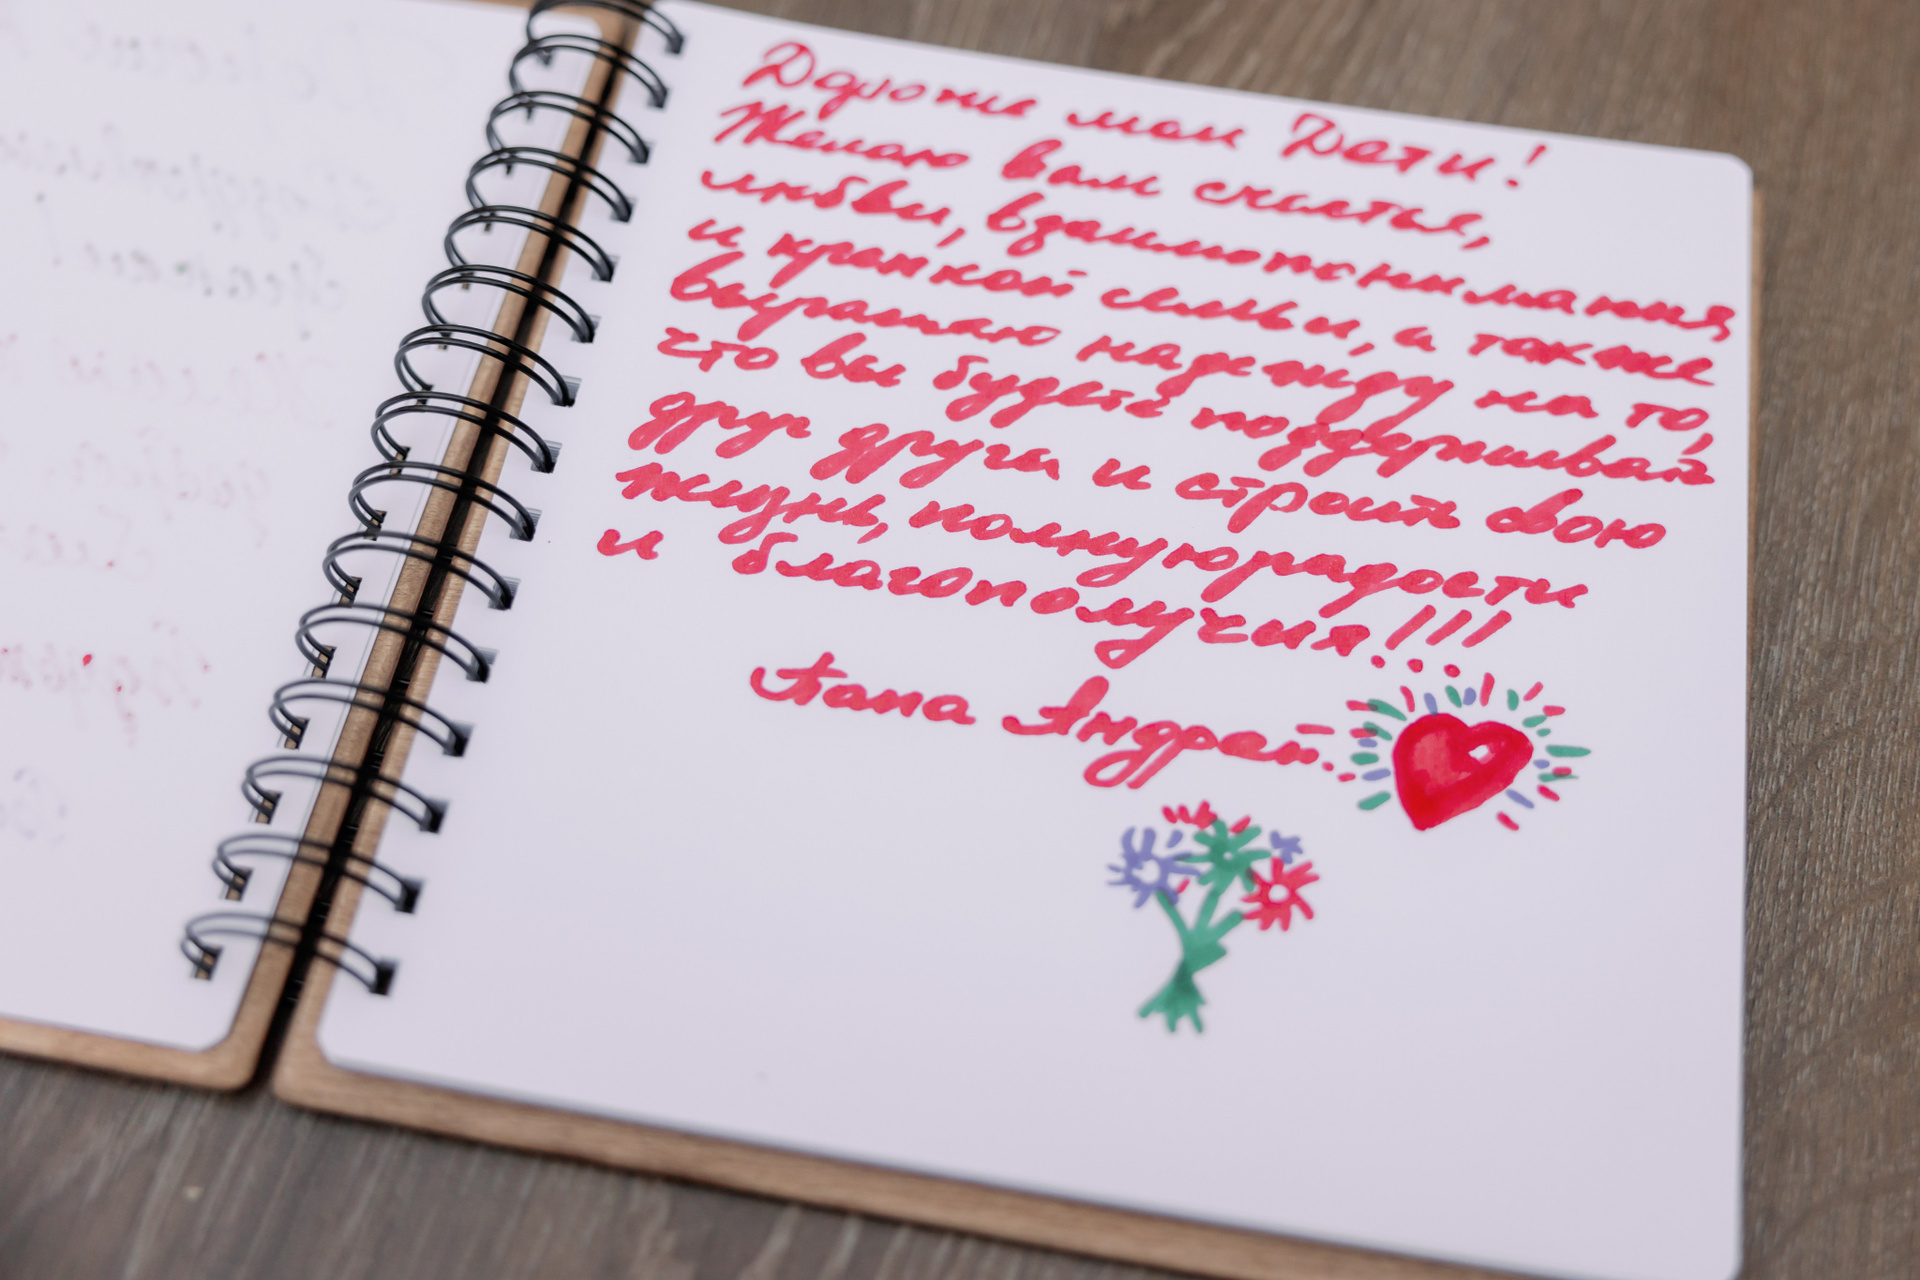 Дорогие мои Дети!
Желаю вам счастья,
любви, взаимопонимания
и крепкой семьи, а также
выражаю надежду на то,
что вы будете поддерживать
друг друга и строить свою
жизнь, полную радости
и благополучия!!!
Папа Андрей.